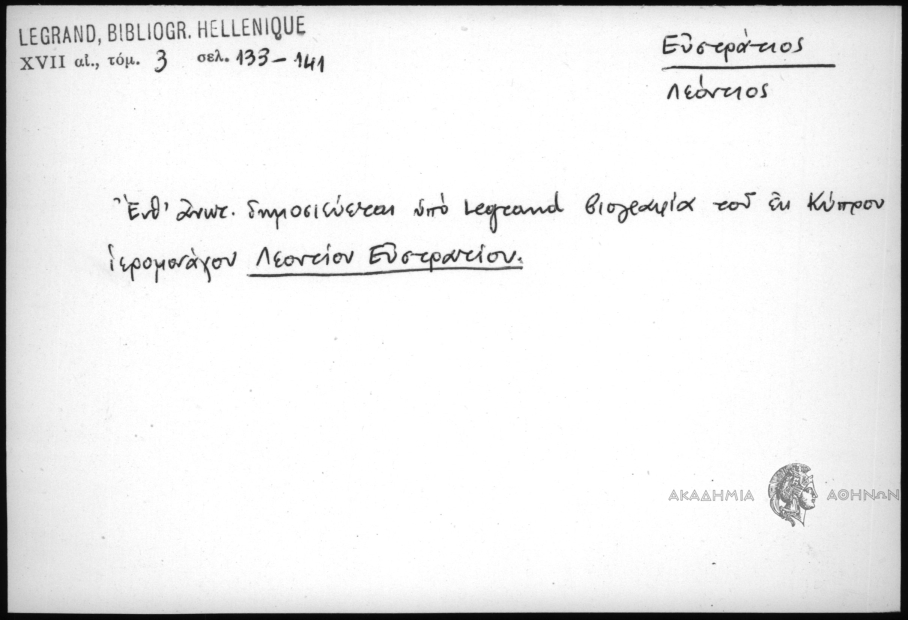 LEGRAND, BIBLIOGR. HELLENIQUE
XVII αἰ., τόμ. 3 σελ. 133-141
Εὐστράτιος
Λεόντιος
Ἔνθ' ἀνωτ. δημοσιεύεται ὑπὸ Legrand βιογραφία τοῦ ἐκ Κύπρου
ἱερομονάχου Λεοντίου Εὐστρατίου.
ΑΚΑΔΗΜΙΑ ΑΘΗΝΩΝ